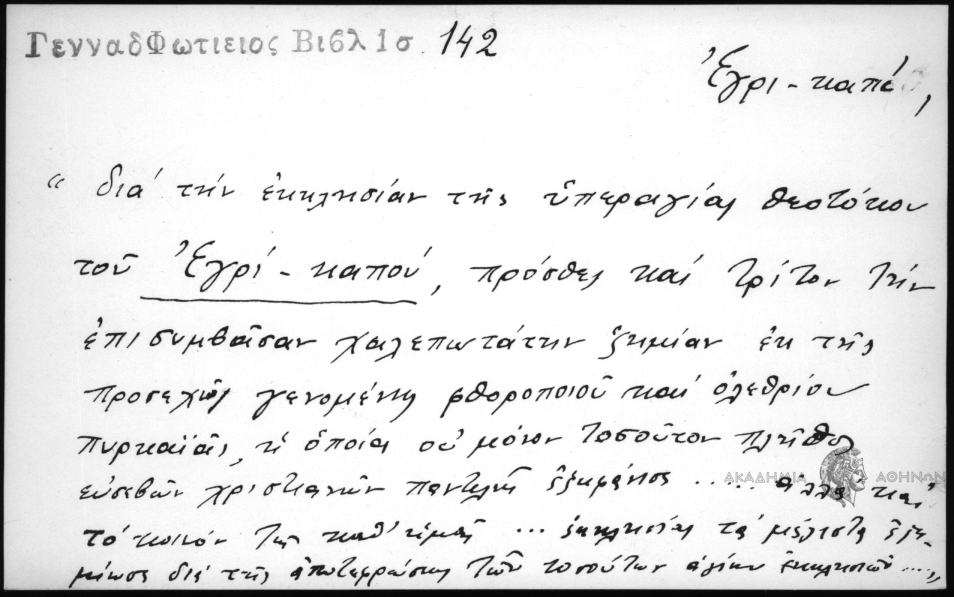 ΓενναδΦωτιειος Βιβλ 1σ. 142
Ἐγρι-καπέ,
“ διά τήν ἐκκλησίαν τῆς ὑπεραγίας θεοτόκου
τοῦ Ἐγρί-καπού, πρόσθες καί τρίτον τήν
ἐπισυμβᾶσαν χαλεπωτάτην ζημίαν ἐκ τῆς
προσεχῶς γενομένης φθοροποιοῦ καί ὀλεθρίου
πυρκαϊᾶς, ἡ ὁποία οὐ μόνον τοσοῦτον πλῆθος
εὐσεβῶν χριστιανῶν παντελῆ ἐξημίωσε ..... ἀλλά καί
τό κοινόν τῆς καθ' ἡμᾶς ... ἐκκλησίας τά μέγιστα ἐζη-
μίωσε διά τῆς ἀποτεφρώσεως τῶν τοσούτων ἁγίων ἐκκλησιῶν ....„
ΑΚΑΔΗΜΙΑ ΑΘΗΝΩΝ